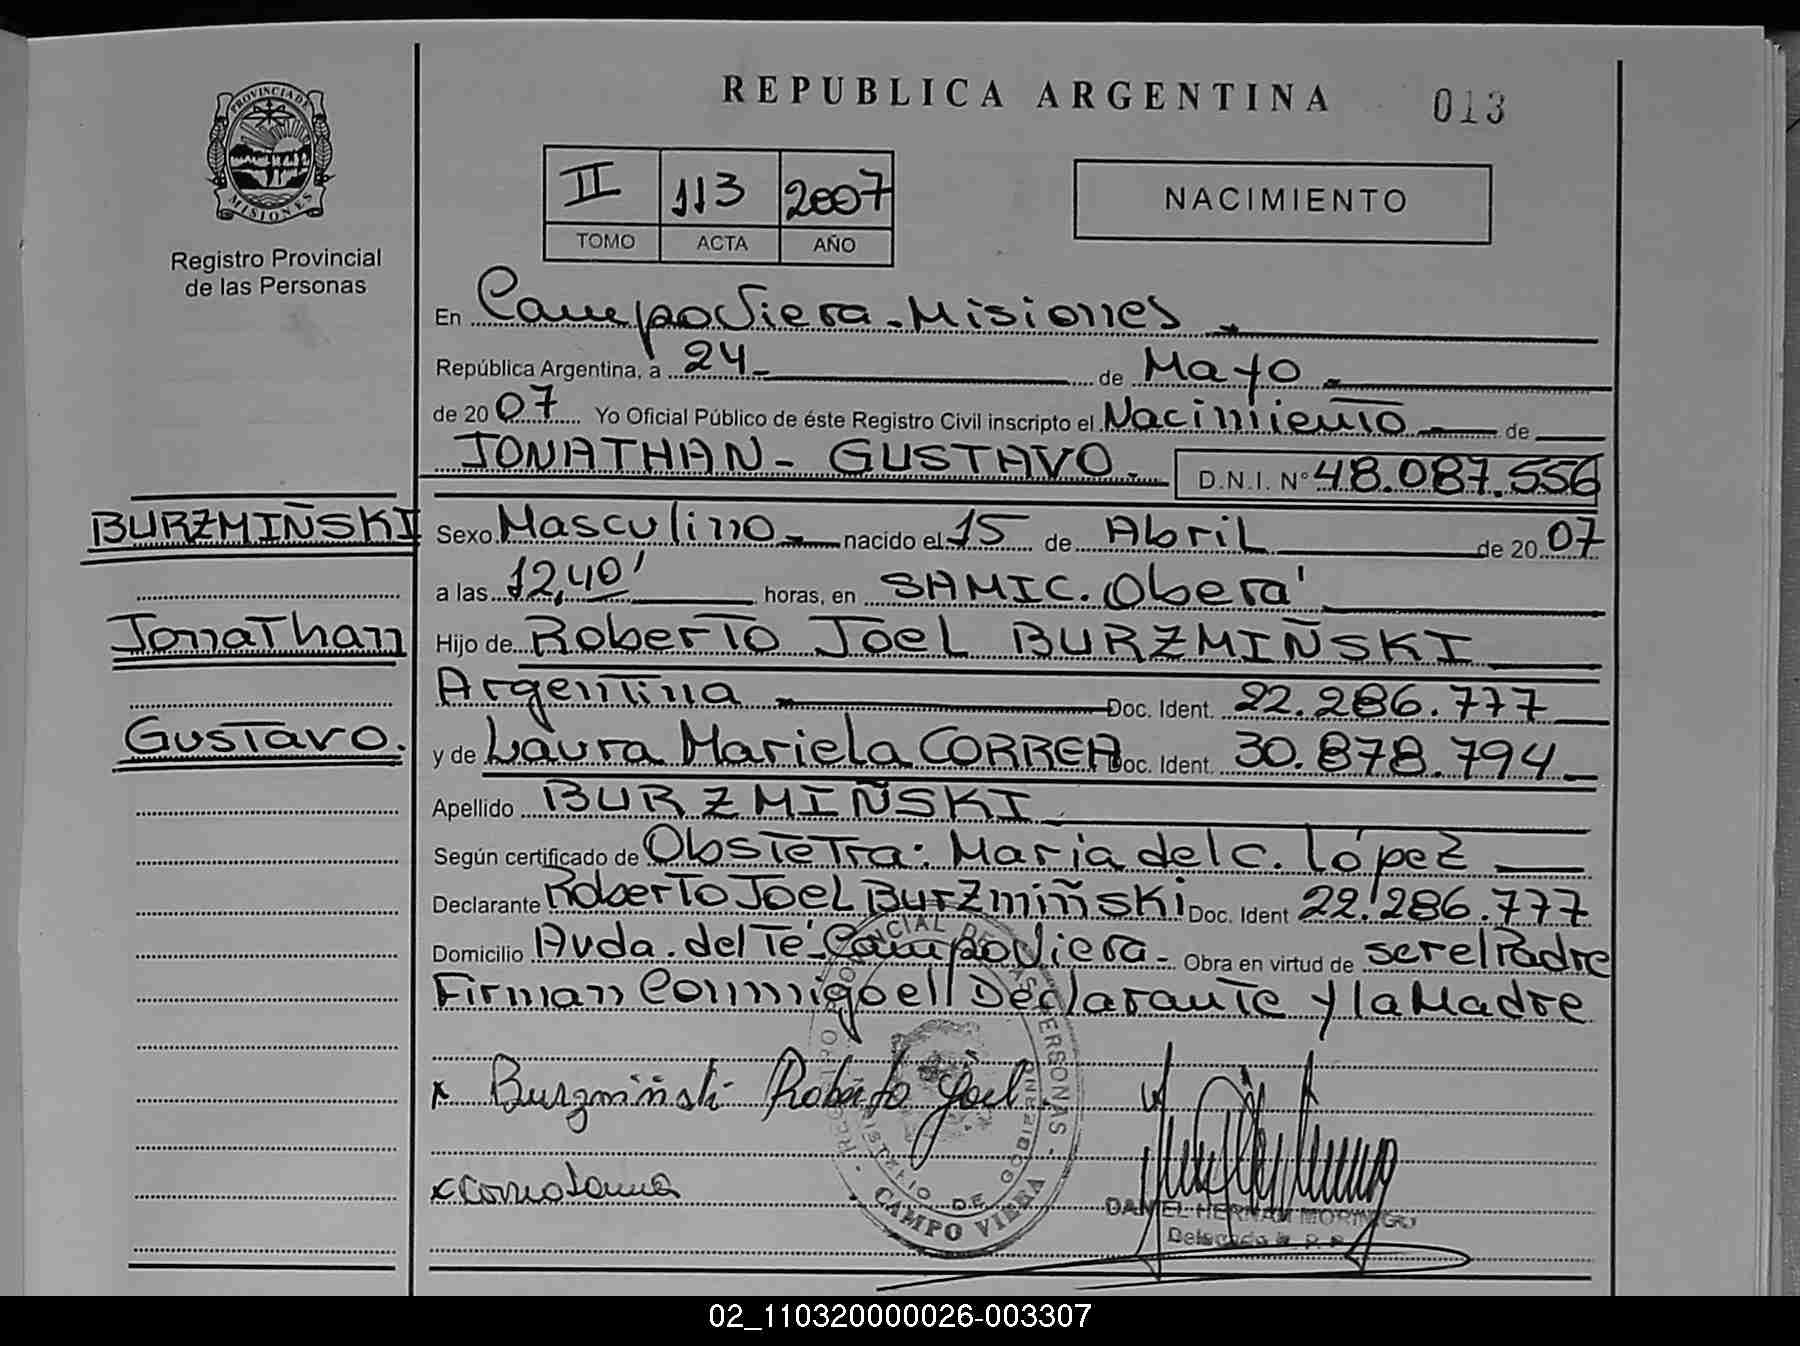 REPUBLICA ARGENTINA 013
PROVINCIA DE
MISIONES
Registro Provincial
de las Personas
II 113 2007
TOMO ACTA AÑO
NACIMIENTO
En Campo Viera - Misiones
República Argentina, a 24 de Mayo
de 2007 Yo Oficial Público de éste Registro Civil inscripto el Nacimiento de
JONATHAN - GUSTAVO. D.N.I. N° 48.087.556
BURZMIÑSKI
Jonathan
Gustavo.
Sexo Masculino nacido el 15 de Abril de 2007
a las 12,40' horas, en SAMIC. Oberá
Hijo de Roberto Joel BURZMIÑSKI
Argentina Doc. Ident. 22.286.777
y de Laura Mariela CORREA Doc. Ident. 30.878.794
Apellido BURZMIÑSKI
Según certificado de Obstetra: Maria del c. López
Declarante Roberto Joel Burzmiñski Doc. Ident 22.286.777
Domicilio Avda. del Té - Campo Viera - Obra en virtud de ser el Padre
Firman Conmigo el Declarante y la Madre
x Burzmiñski Roberto Joel
x
REGISTRO PROVINCIAL DE LAS PERSONAS
MINISTERIO DE GOBIERNO
CAMPO VIERA
DANIEL HERNAN MORINIGO
Delegado R. P. P.
02_110320000026-003307